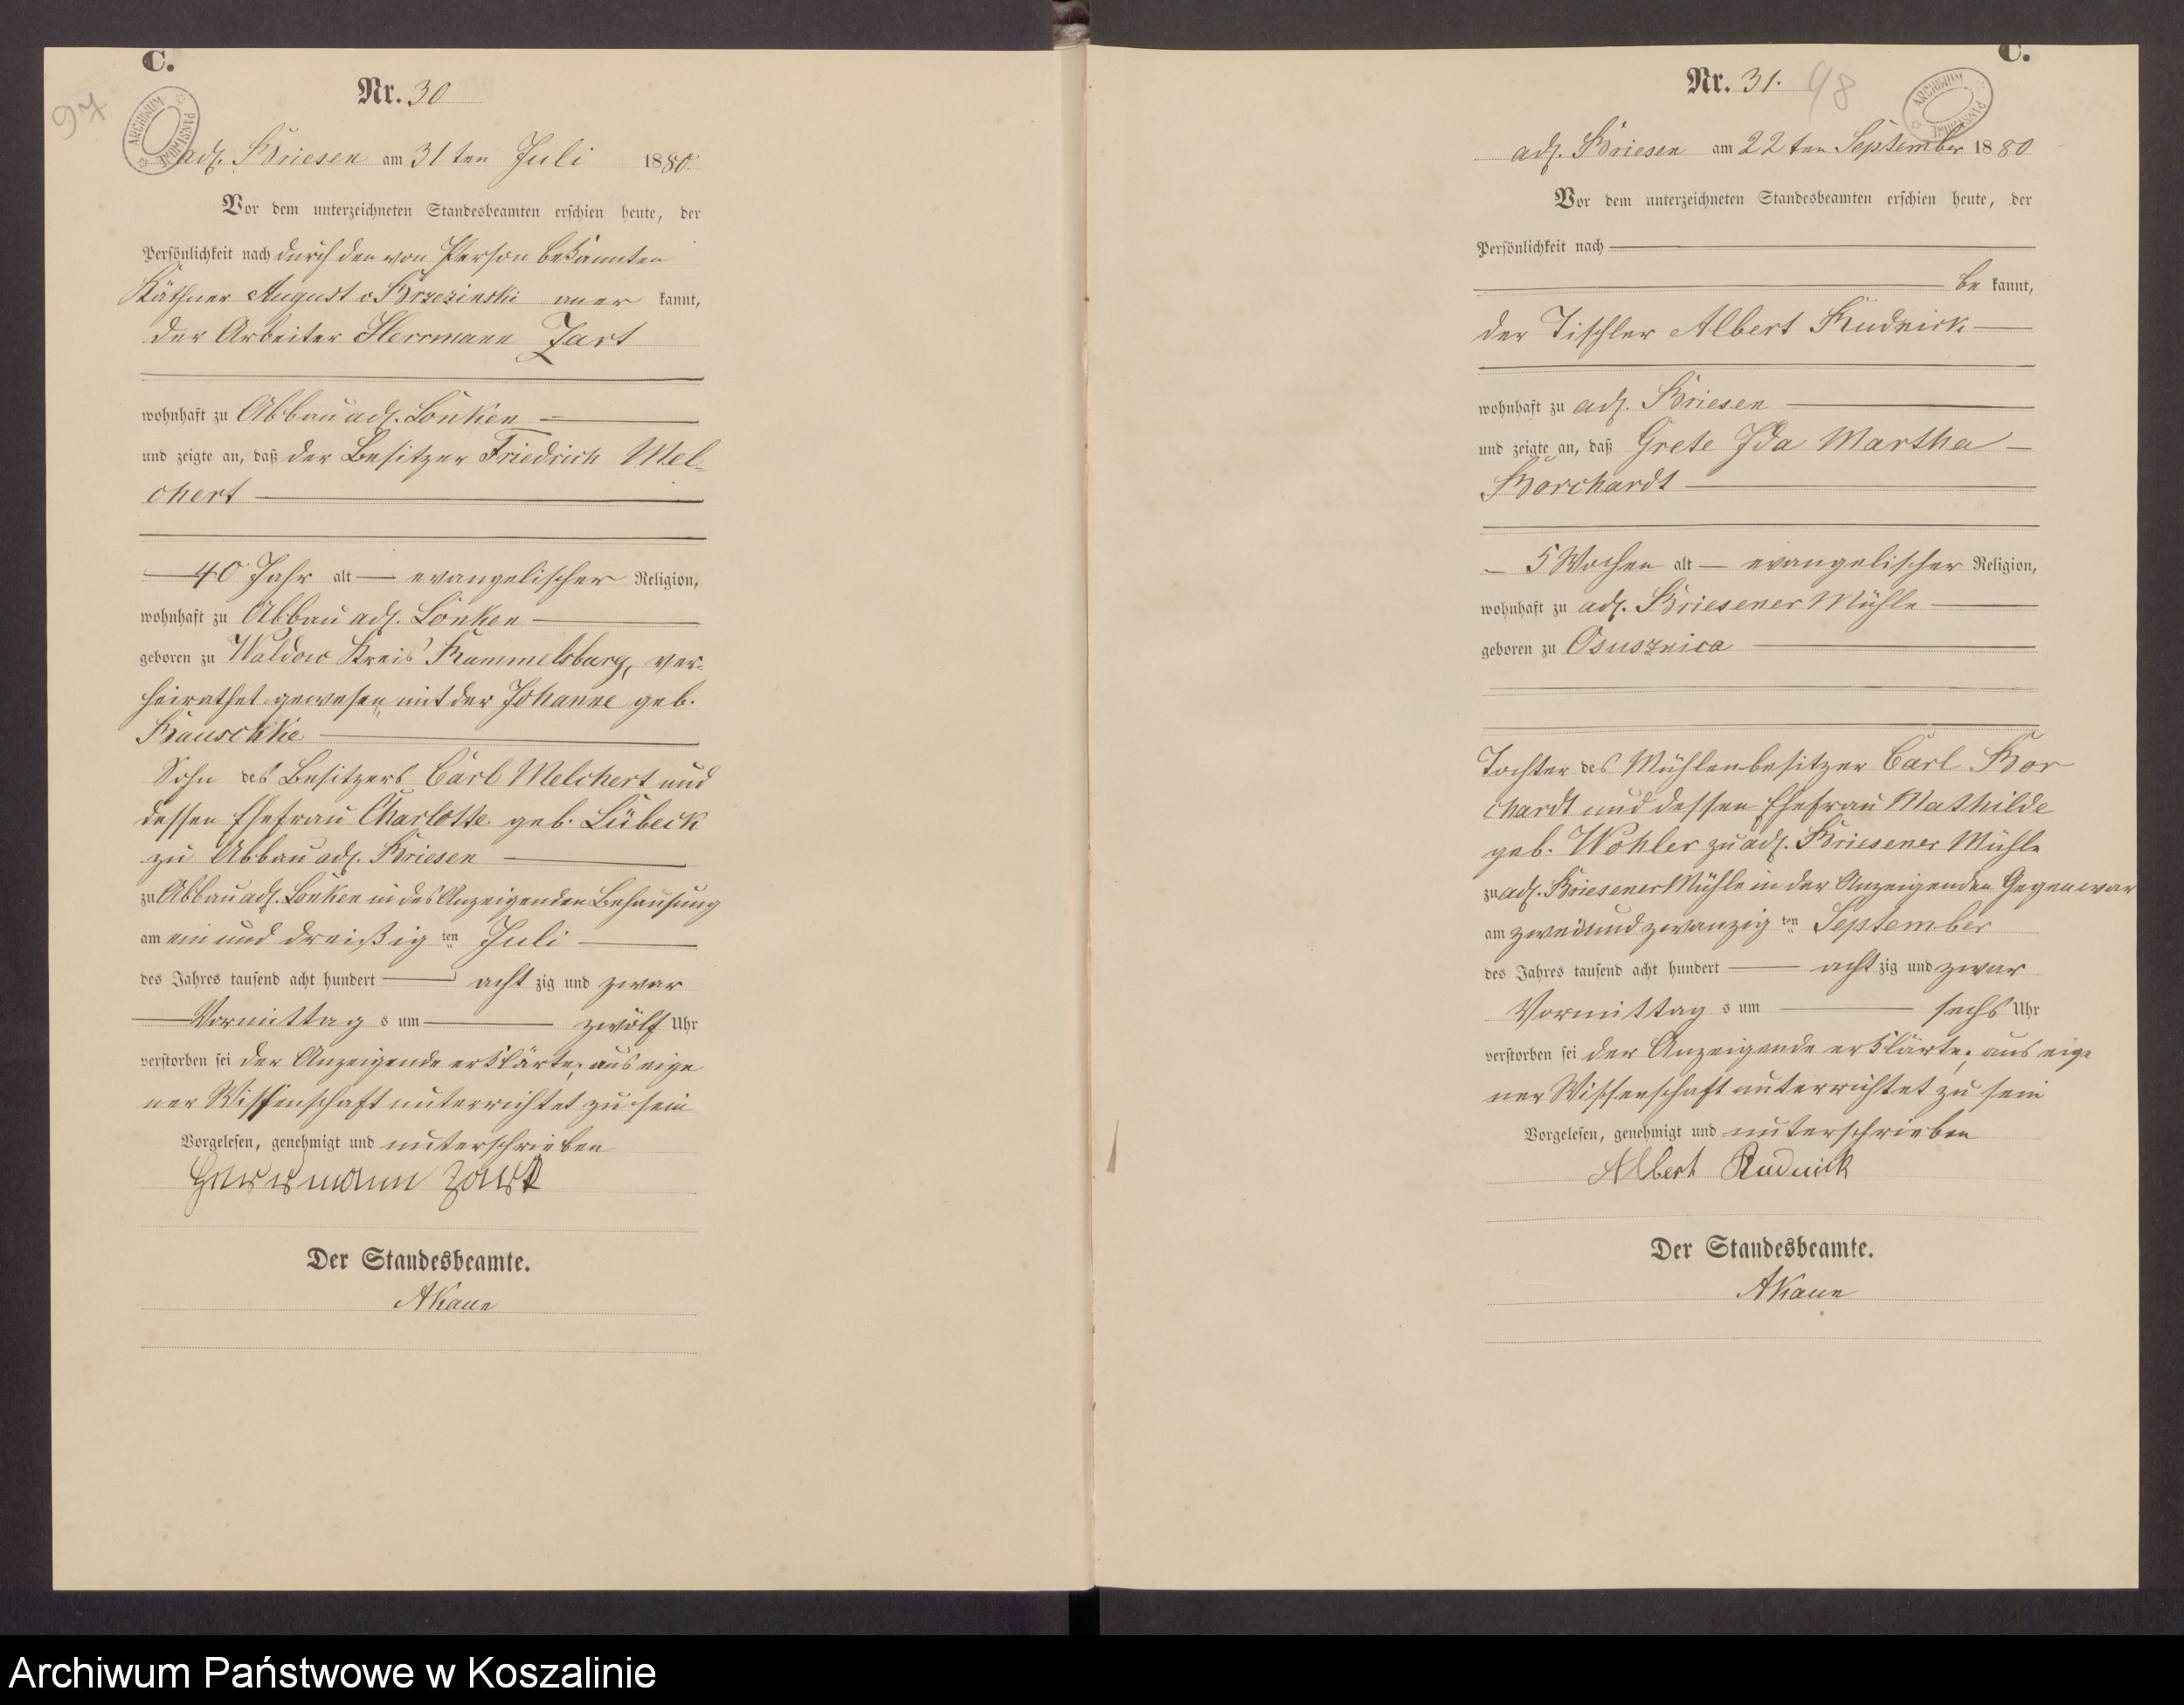 C.
97
Nr. 30
ARCHIWUM PAŃSTWOWE
adl. Briesen am 31ten Juli 1880.
Vor dem unterzeichneten Standesbeamten erschien heute, der
Persönlichkeit nach durch den von Person bekannten
Käthner August v Brzezinski aner kannt,
der Arbeiter Herrmann Zart
wohnhaft zu Abbau adl. Lonken
und zeigte an, daß der Besitzer Friedrich Mel-
chert
40 Jahr alt evangelischer Religion,
wohnhaft zu Abbau adl. Lonken
geboren zu Waldow Kreis Rummelsburg, ver-
heirathet gewesen mit der Johanne geb.
Bauschke
Sohn des Besitzers Carl Melchert und
dessen Ehefrau Charlotte geb. Lübeck
zu Abbau adl. Briesen
zu Abbau adl. Lonken in des Anzeigenden Behausung
am ein und dreißig ten Juli
des Jahres tausend acht hundert acht zig und zwar
Vormittag s um zwölf Uhr
verstorben sei der Anzeigende erklärte, aus eige
ner Wissenschaft unterrichtet zu sein
Vorgelesen, genehmigt und unterschrieben
Herrmann Zart
Der Standesbeamte.
AKaun
C.
Nr. 31.
98
ARCHIWUM PAŃSTWOWE
adl. Briesen am 22ten September 1880
Vor dem unterzeichneten Standesbeamten erschien heute, der
Persönlichkeit nach
be kannt,
der Tischler Albert Rudnick
wohnhaft zu adl. Briesen
und zeigte an, daß Grete Ida Martha
Borchardt
5 Wochen alt evangelischer Religion,
wohnhaft zu adl. Briesener Mühle
geboren zu Osusznica
Tochter des Mühlenbesitzer Carl Bor
chardt und dessen Ehefrau Mathilde
geb. Wohler zu adl. Briesener Mühle
zu adl. Briesener Mühle in der Anzeigenden Gegenwar
am zwei und zwanzig ten September
des Jahres tausend acht hundert acht zig und zwar
Vormittag s um sechs Uhr
verstorben sei der Anzeigende erklärte, aus eige
ner Wissenschaft unterrichtet zu sein
Vorgelesen, genehmigt und unterschrieben
Albert Rudnick
Der Standesbeamte.
AKaun
Archiwum Państwowe w Koszalinie